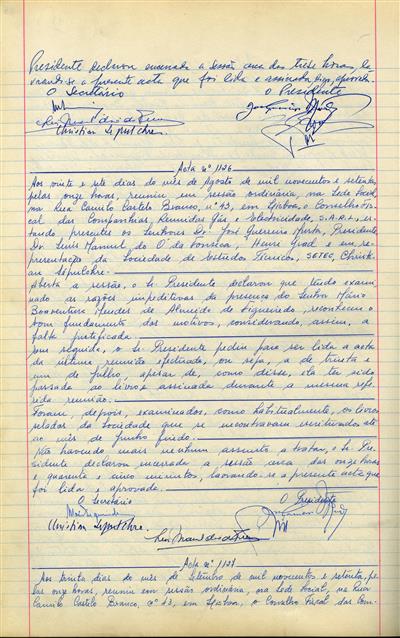 Presidente declarou encerrada a sessão cerca das treze horas, la-
vrando-se a presente acta que foi lida e assinada, digo, aprovada.
O Secretário O Presidente
Christian Sepulchre.
Acta nº 1126
Aos vinte e sete dias do mês de Agosto de mil novecentos e setenta,
pelas onze horas, reuniu em sessão ordinária, na Sede Social,
na Rua Camilo Castelo Branco, nº 43, em Lisboa, o Conselho Fis-
cal das Companhias Reunidas Gás e Electricidade, S.A.R.L., es-
tando presentes os Senhores Dr. José Guerreiro Murta, Presidente,
Dr. Luís Manuel do O' da Fonseca, Henri Grad e em re-
presentação da Sociedade de Estudos Técnicos, SETEC, Christi-
an Sépulchre.
Aberta a sessão, o Sr Presidente declarou que tendo exami-
nado as razões impeditivas da presença do Senhor Mário
Boaventura Mendes de Almeida de Figueiredo, reconheceu o
bom fundamento dos motivos, considerando, assim, a
falta justificada.
Em seguida, o Sr Presidente pediu para ser lida a acta
da última reunião efectuada, ou seja, a de trinta e
um de Julho, apesar de, como disse, ela ter sido
passada ao livro e assinada durante a mesma refe-
rida reunião.
Foram, depois, examinados, como habitualmente, os livros
selados da Sociedade que se encontravam escriturados até
ao mês de Junho findo.
Não havendo mais nenhum assunto a tratar, o Sr Pre-
sidente declarou encerrada a sessão cerca das onze horas
e quarenta e cinco minutos, lavrando-se a presente acta que
foi lida e aprovada.
O Secretário O Presidente
Christian Sepulchre.
Acta nº 1127
Aos trinta dias do mês de Setembro de mil novecentos e setenta, pe-
las onze horas, reuniu em sessão ordinária, na Sede Social, na Rua
Camilo Castelo Branco, nº 43, em Lisboa, o Conselho Fiscal das Com-